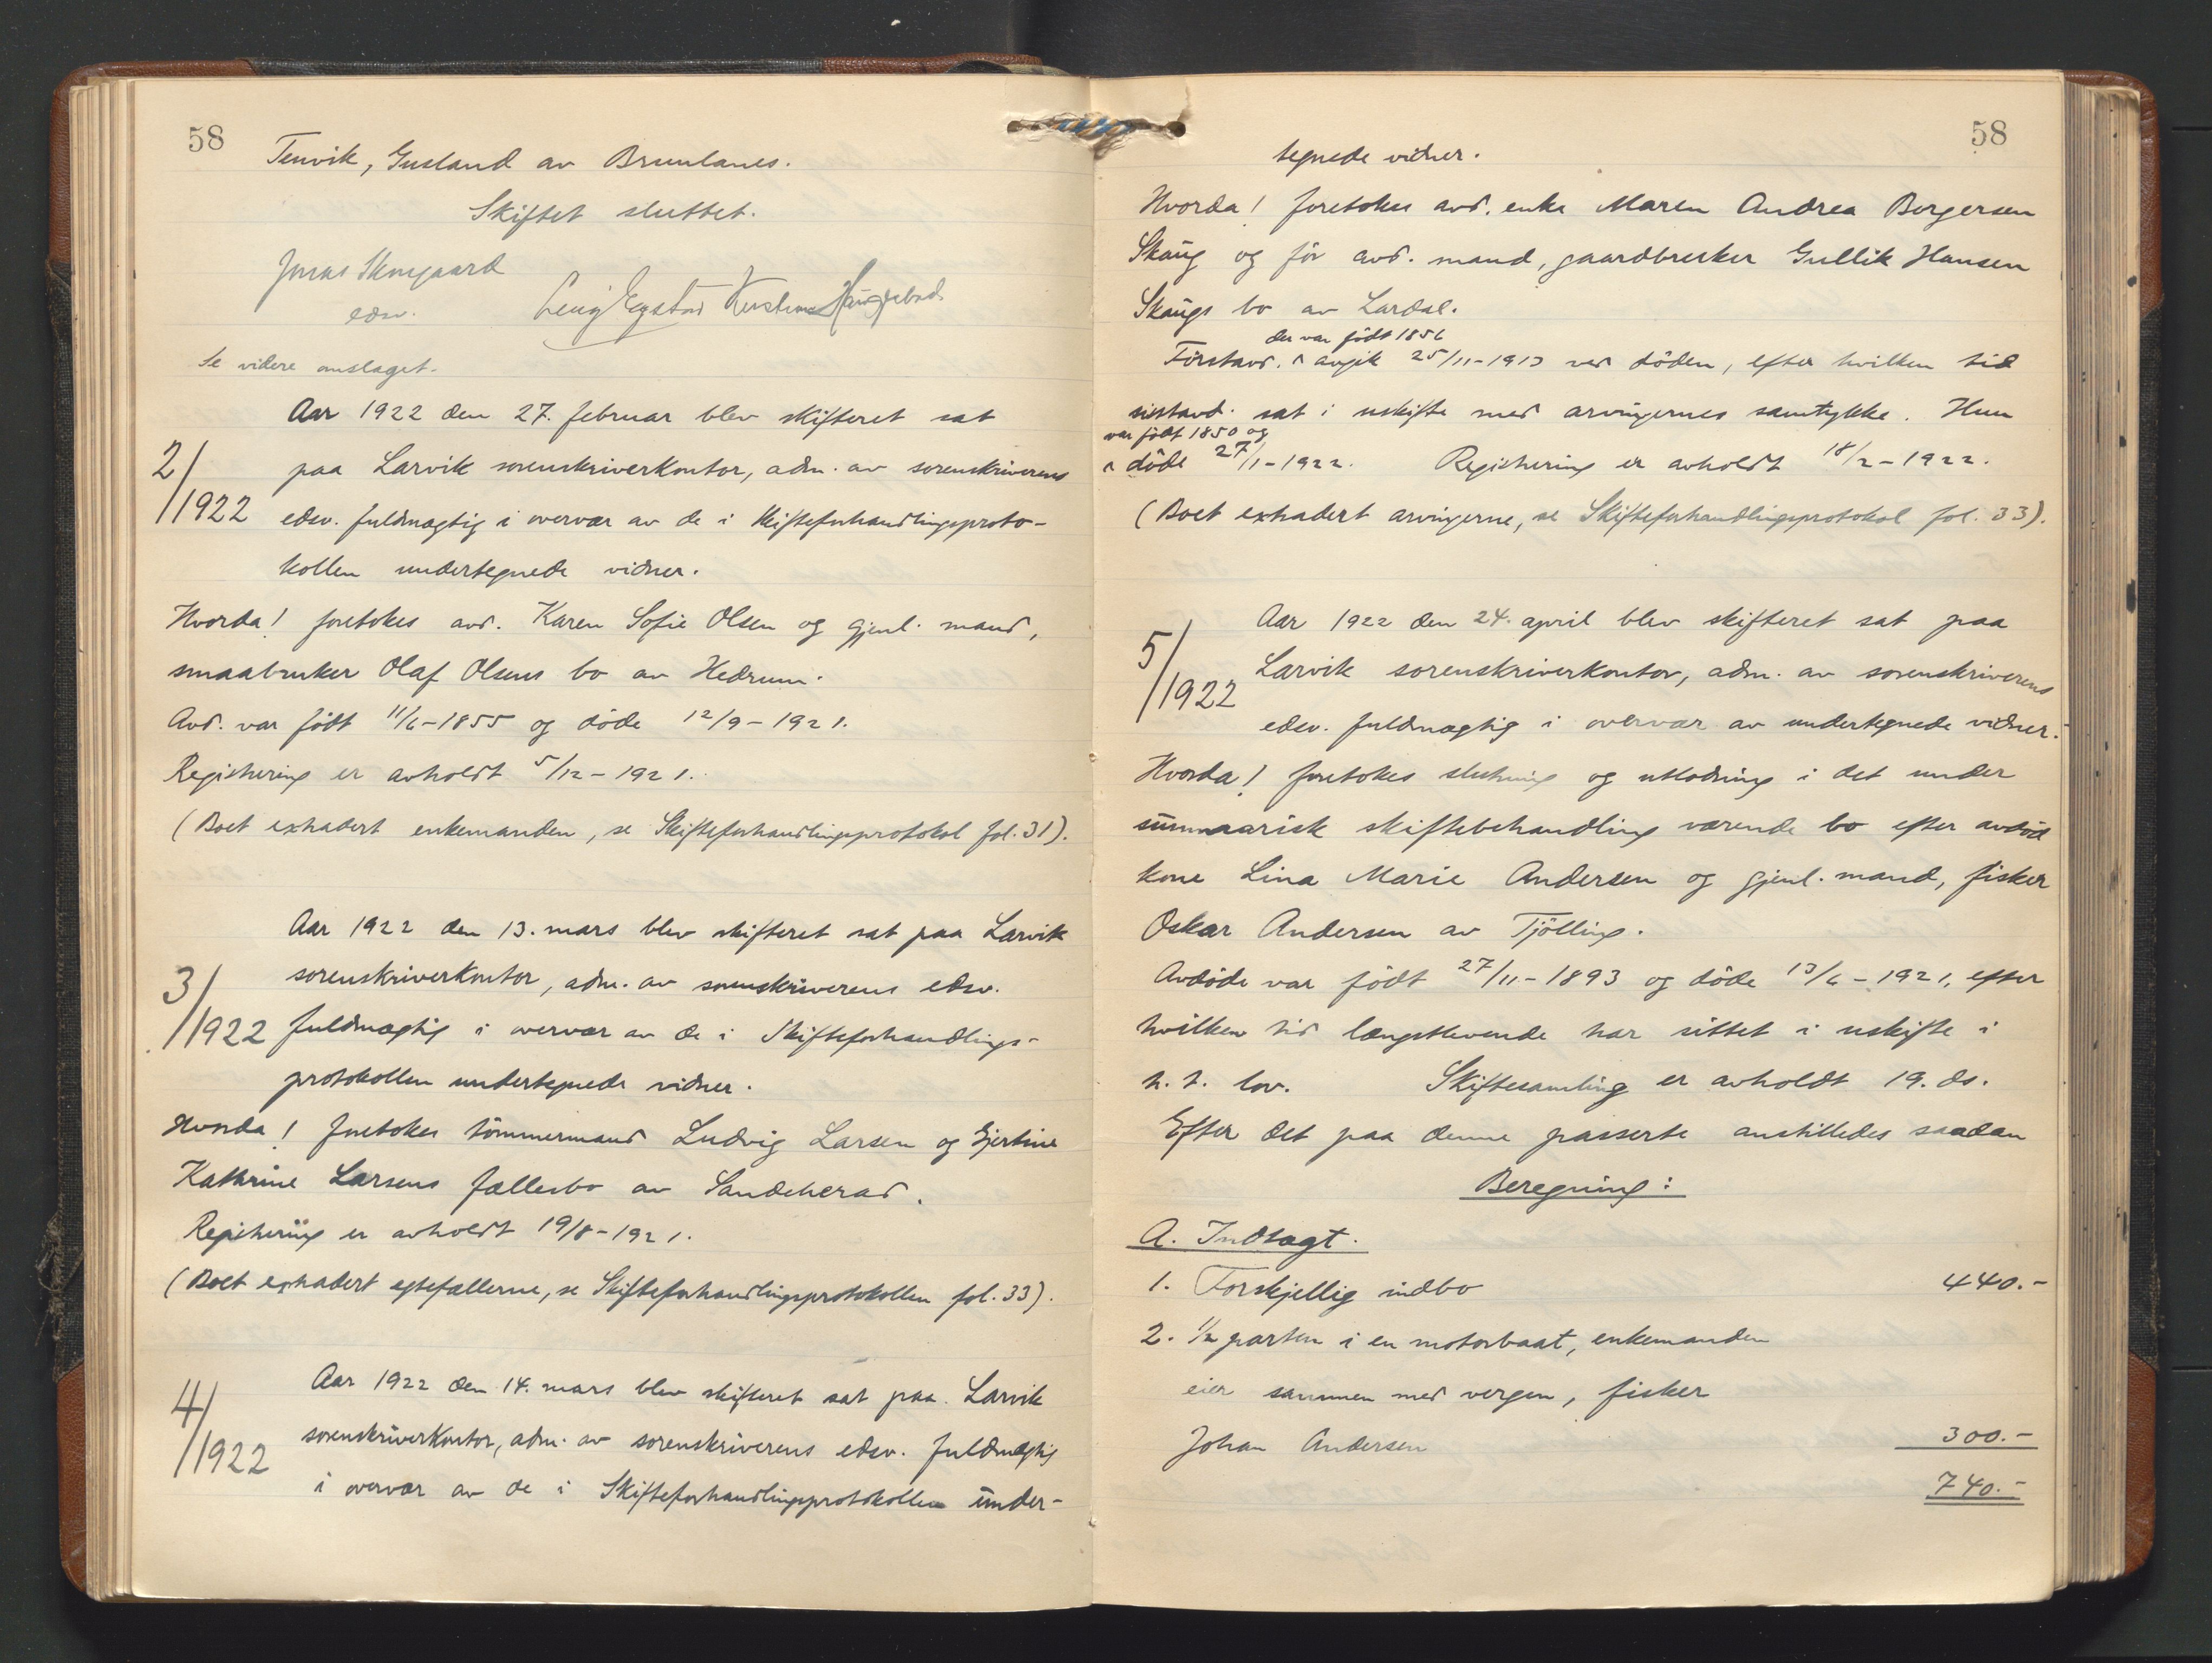 58
Tenvik, Gusland av Brunlanes.
Skiftet sluttet.
edsv.
Se videre omslaget.
Aar 1922 den 27. februar blev skifteret sat
2/1922
paa Larvik sorenskriverkontor, adm. av sorenskriverens
edsv. fuldmægtig i overvær av de i Skifteforhandlingsproto-
kollen undertegnede vidner.
Hvorda! foretokes avd. Karen Sofie Olsen og gjenl. mand,
smaabruker Olaf Olsens bo av Hedrum.
Avd. var født 11/6-1855 og døde 12/9-1921.
Registrering er avholdt 5/12-1921.
(Boet extradert enkemanden, se Skifteforhandlingsprotokol fol. 31).
Aar 1922 den 13. mars blev skifteret sat paa Larvik
3/1922
sorenskriverkontor, adm. av sorenskriverens edsv.
fuldmægtig i overvær av de i Skifteforhandlings-
protokollen undertegnede vidner.
Hvorda! foretokes tömmermand Ludvig Larsen og Gjertine
Kathrine Larsens fællesbo av Sandeherad.
Registrering er avholdt 19/8-1921.
(Boet extradert egtefællerne, se Skifteforhandlingsprotokollen fol. 33).
Aar 1922 den 14. mars blev skifteret sat paa Larvik
4/1922
sorenskriverkontor, adm. av sorenskriverens edsv. fuldmægtig
i overvær av de i Skifteforhandlingsprotokollen under-
58
tegnede vidner.
Hvorda! foretokes avd. enke Maren Andrea Borgersen
Skaug og før avd. mand, gaardbruker Gullik Hansen
Skaugs bo av Lardal.
der var födt 1856
Förstavd. avgik 25/11-1913 ved döden, efter hvilken tid
sistavd. sat i uskifte med arvingernes samtykke. Hun
var födt 1850 og
döde 27/1-1922. Registrering er avholdt 18/2-1922.
(Boet extradert arvingerne, se Skifteforhandlingsprotokol fol. 33).
Aar 1922 den 24. april blev skifteret sat paa
5/1922
Larvik sorenskriverkontor, adm. av sorenskriverens
edsv. fuldmægtig i overvær av undertegnede vidner.
Hvorda! foretokes slutning og utlodning i det under
summarisk skiftebehandling værende bo efter avdød
kone Lina Marie Andersen og gjenl. mand, fisker
Oskar Andersen av Tjölling.
Avdöde var födt 27/11-1893 og döde 13/6-1921, efter
hvilken tid længstlevende har sittet i uskifte i
h. t. lov. Skiftesamling er avholdt 19. ds.
Efter det paa denne passerte anstilledes saadan
Beregning:
A. Indtægt.
1. Forskjellig indbo 440.-
2. 1/2 parten i en motorbaat, enkemanden
eier sammen med vergen, fisker
Johan Andersen 300.-
740.-